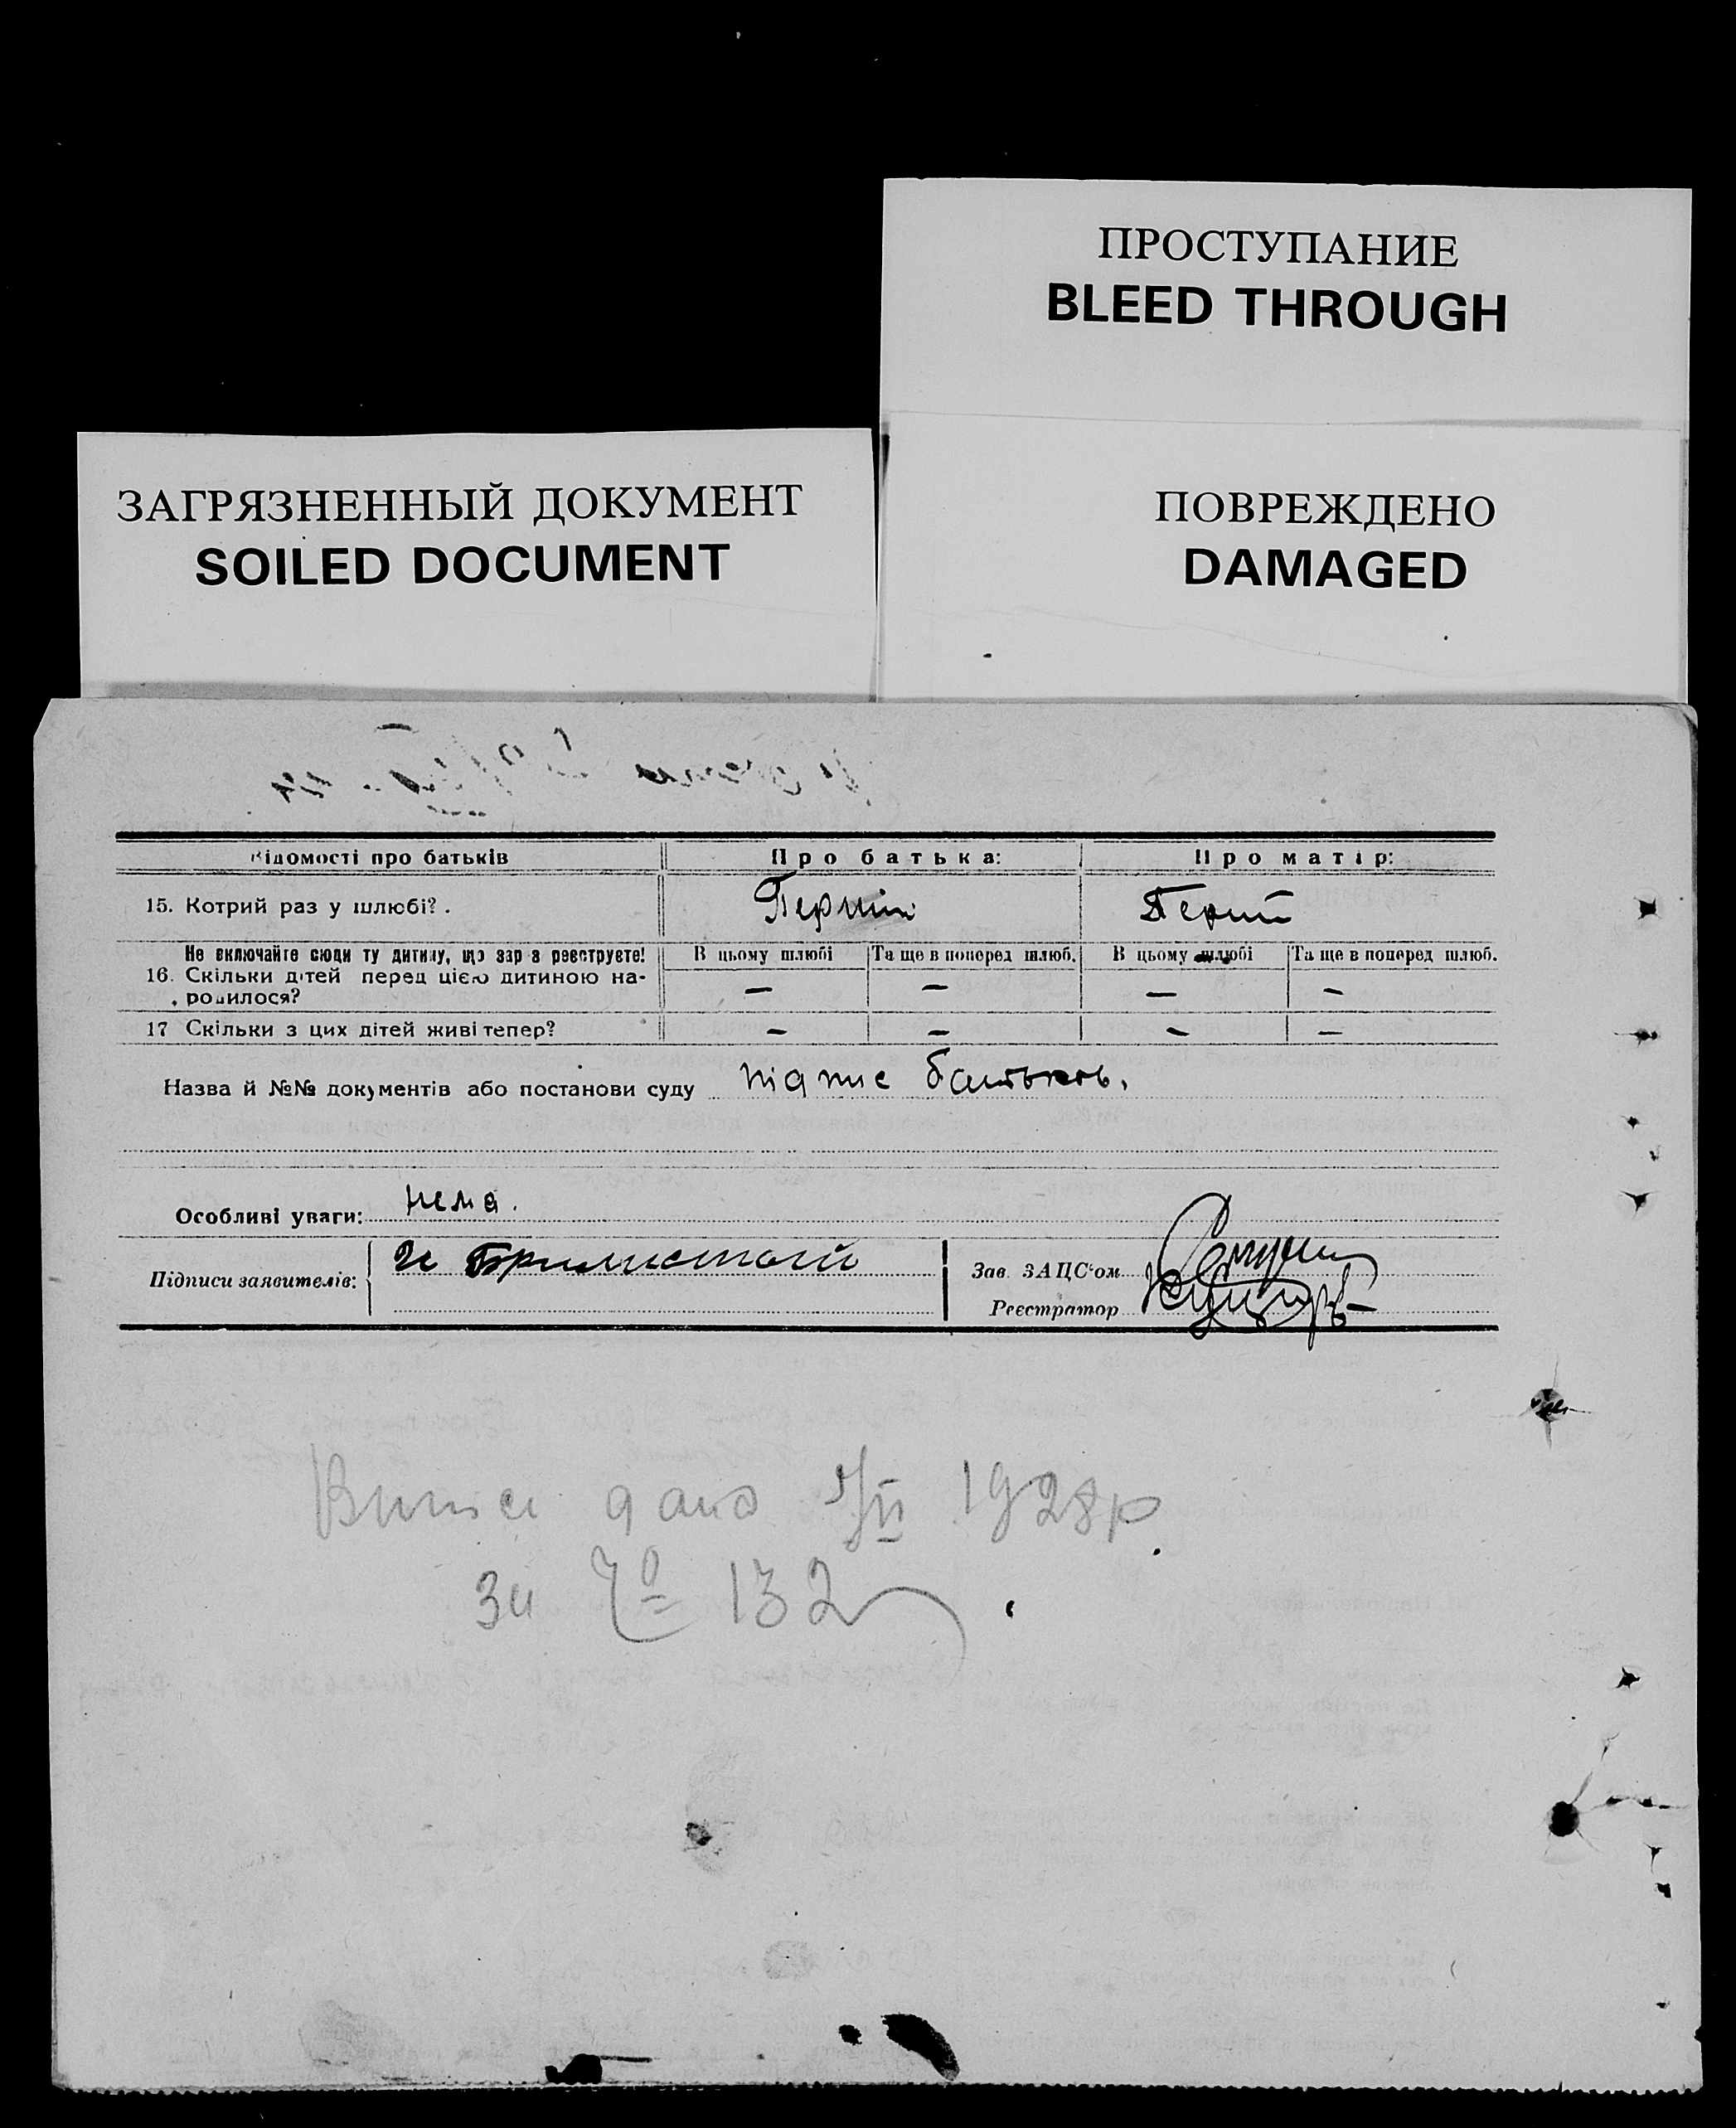 ПРОСТУПАНИЕ
BLEED THROUGH
ЗАГРЯЗНЕННЫЙ ДОКУМЕНТ
SOILED DOCUMENT
ПОВРЕЖДЕНО
DAMAGED
Відомості про батьків Про батька: Про матір:
15. Котрий раз у шлюбі? . Перший Перший
Не включайте сюди ту дитину, що зараз реєструєте! В цьому шлюбі Та ще в поперед шлюб. В цьому шлюбі Та ще в поперед шлюб.
16. Скільки дітей перед цією дитиною на-
родилося? — — — —
17 Скільки з цих дітей живі тепер? — — — —
Назва й №№ документів або постанови суду підпис батьків.
Особливі уваги: нема.
Підписи заявителів:
Зав. ЗАЦС'ом
Реєстратор
Випис дано 1928р.
за № 132